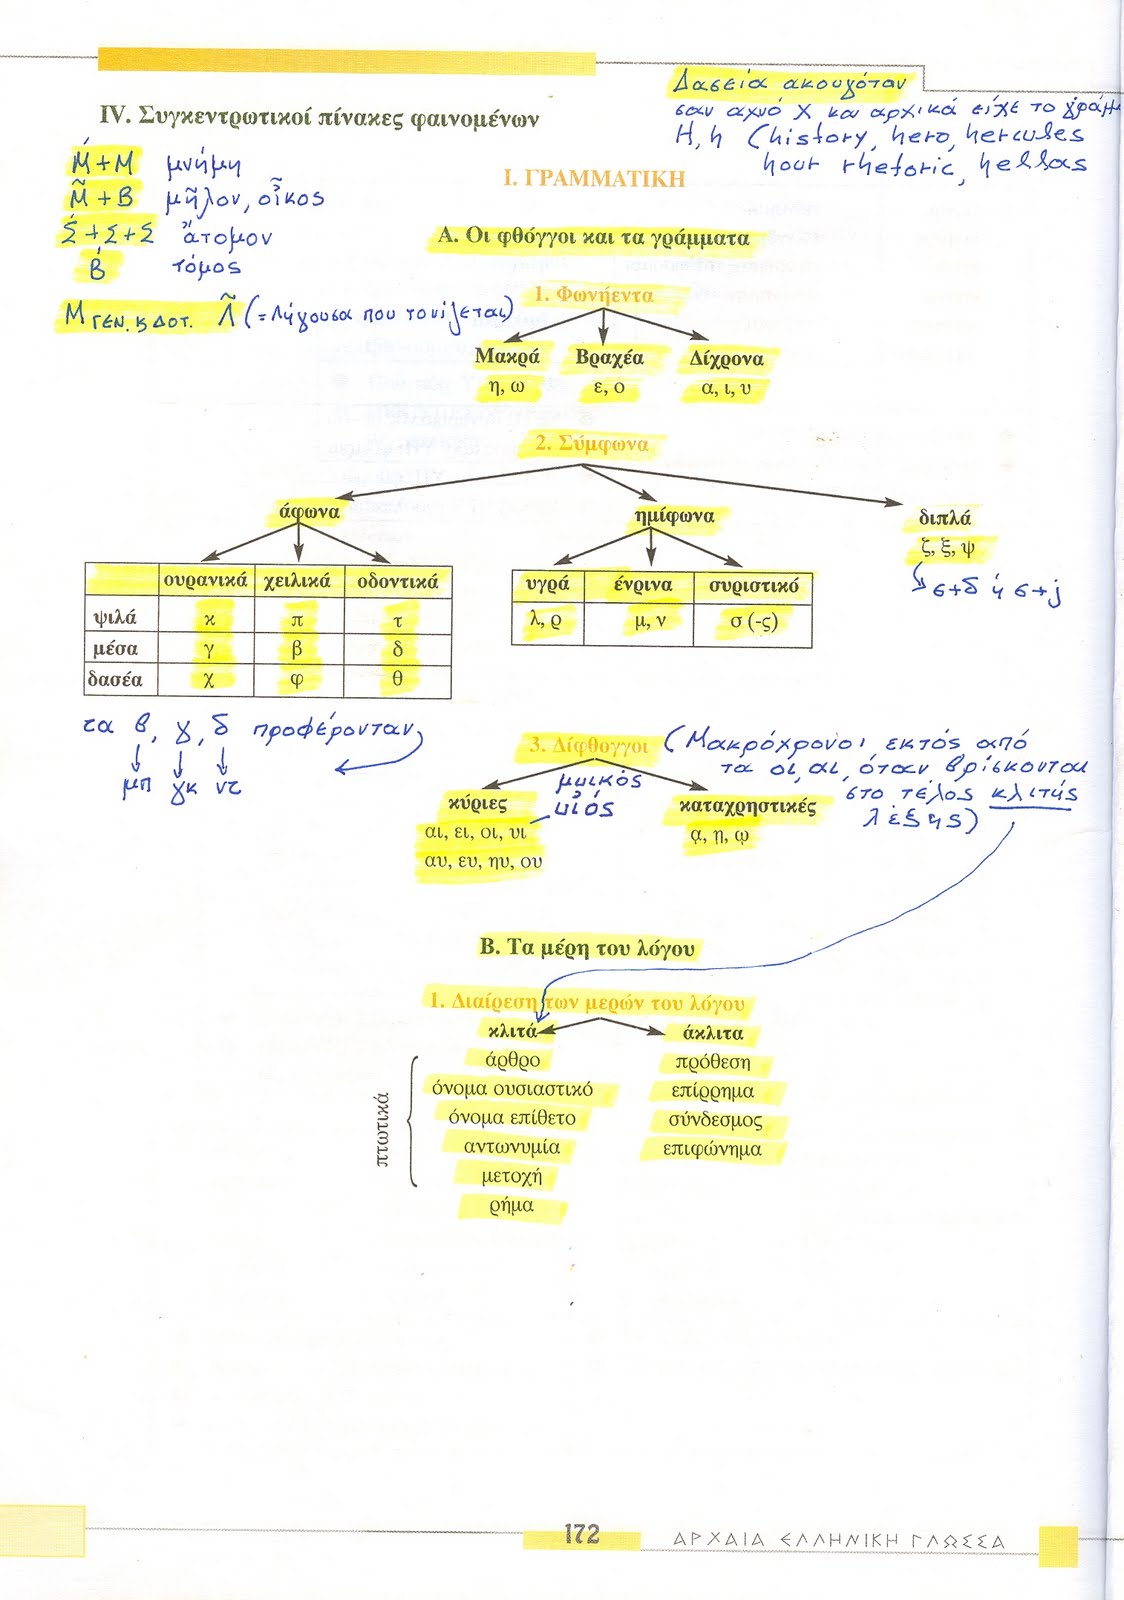 Δασεία ακουγόταν
σαν αχνό χ και αρχικά είχε το γράμμ
Η, h (history, hero, hercules
hour rhetoric, hellas
IV. Συγκεντρωτικοί πίνακες φαινομένων
Μ́+Μ μνήμη
Μ̃+Β μῆλον, οἶκος
Σ́+Σ+Σ ἄτομον
Β́ τόμος
Μ ΓΕΝ. κ ΔΟΤ. Λ̃ (=Λήγουσα που τονίζεται)
Ι. ΓΡΑΜΜΑΤΙΚΗ
Α. Οι φθόγγοι και τα γράμματα
1. Φωνήεντα
Μακρά Βραχέα Δίχρονα
η, ω ε, ο α, ι, υ
2. Σύμφωνα
άφωνα ημίφωνα διπλά
ζ, ξ, ψ
σ+δ ή σ+j
ουρανικά χειλικά οδοντικά
ψιλά κ π τ
μέσα γ β δ
δασέα χ φ θ
υγρά ένρινα συριστικό
λ, ρ μ, ν σ (-ς)
τα β, γ, δ προφέρονταν
μπ γκ ντ
3. Δίφθογγοι (Μακρόχρονοι εκτός από
τα οι, αι, όταν βρίσκονται
στο τέλος κλιτής
λέξης)
κύριες καταχρηστικές
μυικός
υἱός
αι, ει, οι, υι ᾳ, ῃ, ῳ
αυ, ευ, ηυ, ου
Β. Τα μέρη του λόγου
1. Διαίρεση των μερών του λόγου
κλιτά άκλιτα
άρθρο πρόθεση
όνομα ουσιαστικό επίρρημα
όνομα επίθετο σύνδεσμος
αντωνυμία επιφώνημα
μετοχή
ρήμα
πτωτικά
172 ΑΡΧΑΙΑ ΕΛΛΗΝΙΚΗ ΓΛΩΣΣΑ